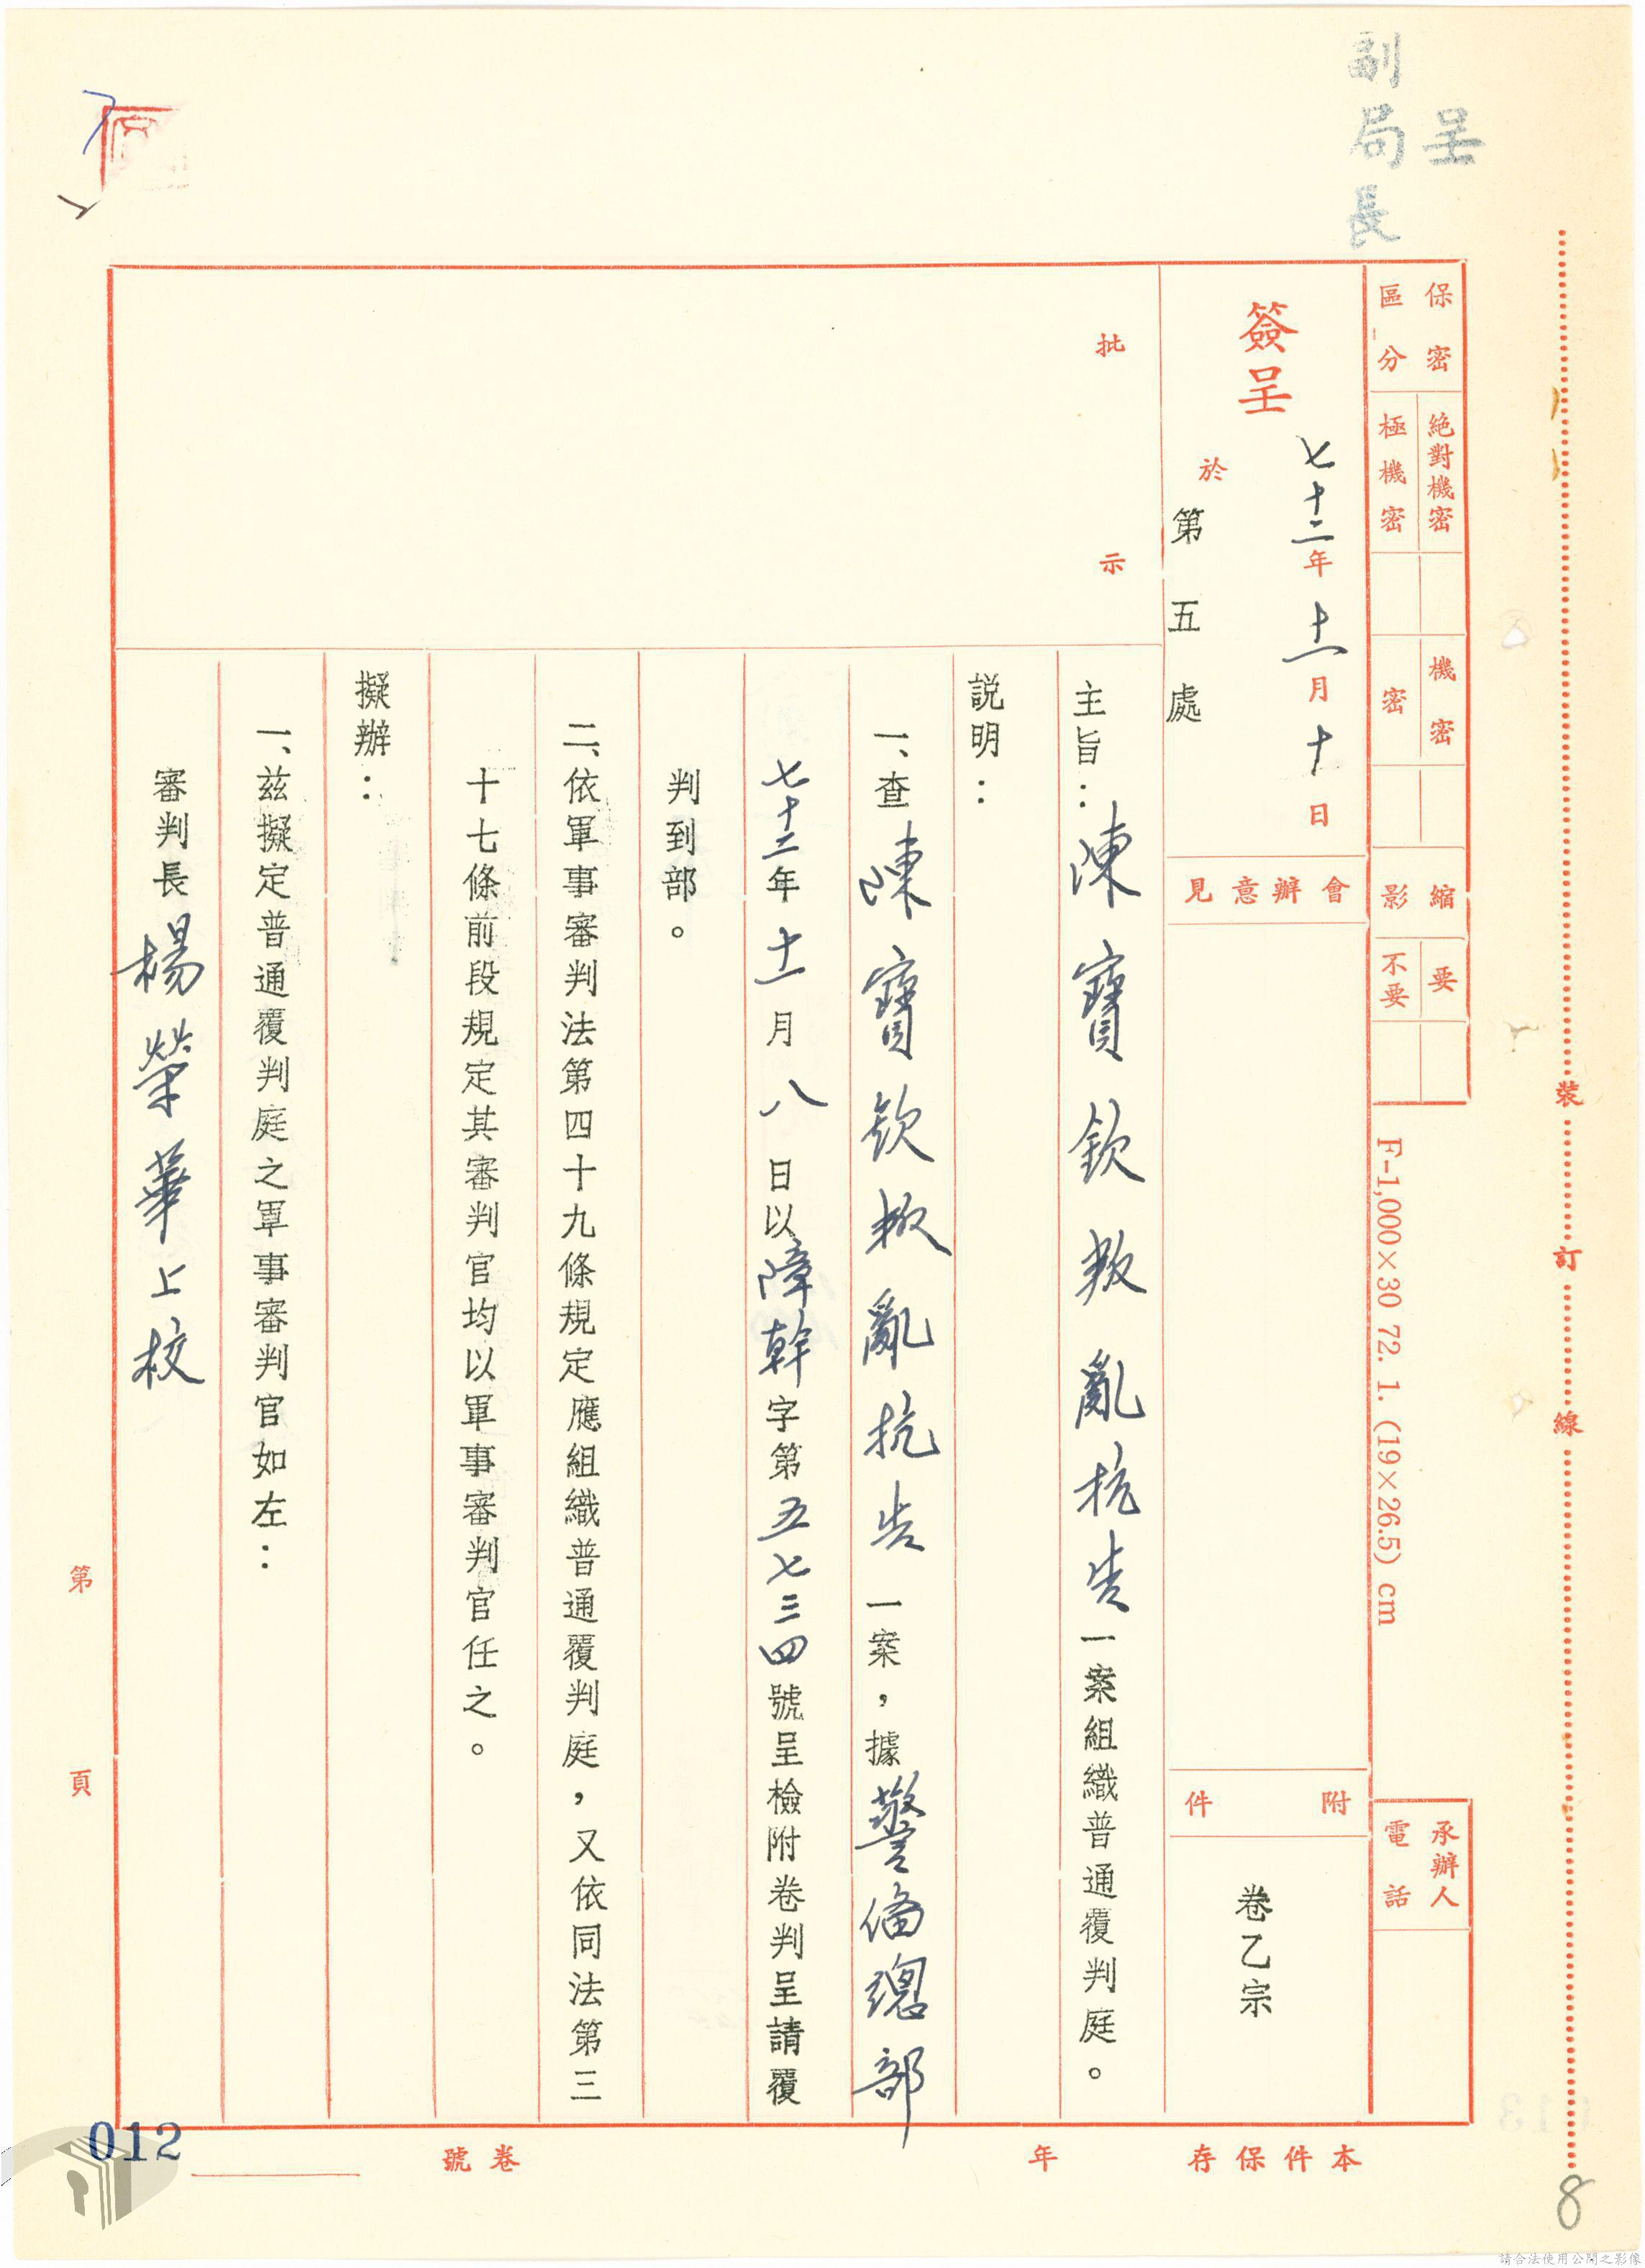 呈
副局長
保密區分
絕對機密
極機密
機密
密
縮影
要
不要
F-1,000×30 72. 1. (19×26.5) cm
承辦人
電話
簽呈
七十二年十一月十日
於
第五處
會辦意見
附件
卷乙宗
批示
主旨：陳寶欽叛亂抗告一案組織普通覆判庭。
説明：
一、查陳寶欽叛亂抗告一案，據警備總部
七十二年十一月八日以障幹字第五七三四號呈檢附卷判呈請覆
判到部。
二、依軍事審判法第四十九條規定應組織普通覆判庭，又依同法第三
十七條前段規定其審判官均以軍事審判官任之。
擬辦：
一、兹擬定普通覆判庭之軍事審判官如左：
審判長楊榮華上校
第 頁
裝
訂
線
本件保存 年
卷號
012
8
請合法使用公開之影像